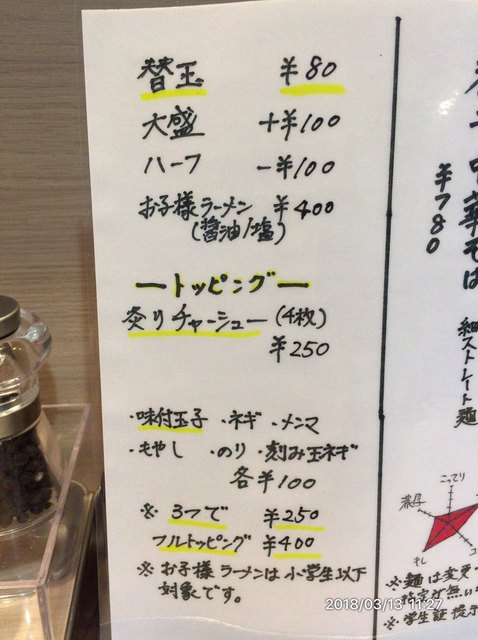 替玉 ¥80
大盛 +¥100
ハーフ -¥100
お子様ラーメン ¥400
(醤油/塩)
ートッピングー
炙りチャーシュー(4枚)
¥250
・味付玉子 ・ネギ ・メンマ
・もやし ・のり ・刻み玉ネギ
各¥100
※ 3つで ¥250
フルトッピング ¥400
※お子様ラーメンは小学生以下
対象です。
中華そば
¥780
細ストレート麺
こってり
濃厚
※麺は変更
※学生証提示
2018/03/13 11:27